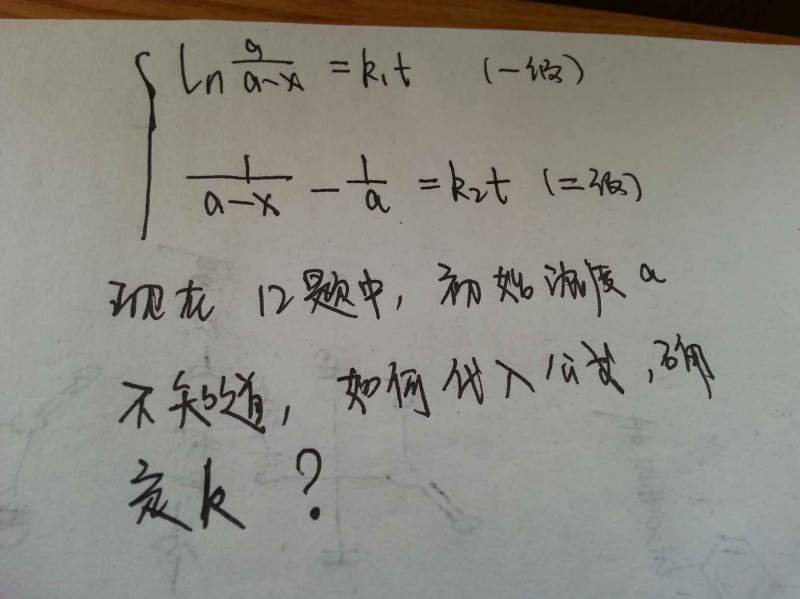 ln a/(a-x) = k₁t (一级)
1/(a-x) - 1/a = k₂t (二级)
现在 12题中, 初始浓度 a
不知道, 如何代入公式, 确
定 k ?